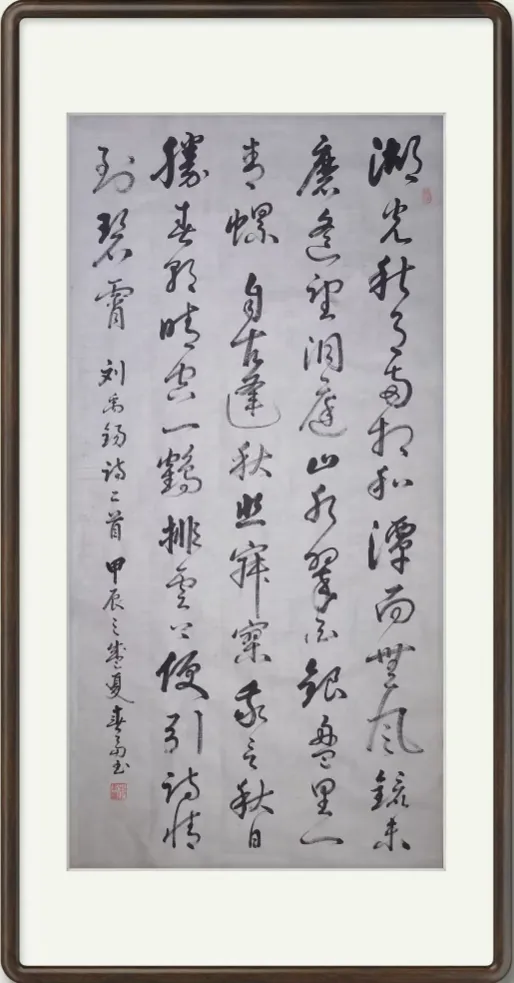 湖光秋月两相和潭面無风鏡未
磨遙望洞庭山水翠白銀盤里一
青螺 自古逢秋悲寂寥我言秋日
勝春朝晴空一鶴排雲上便引詩情
到碧霄 刘禹錫詩二首 甲辰之盛夏 书